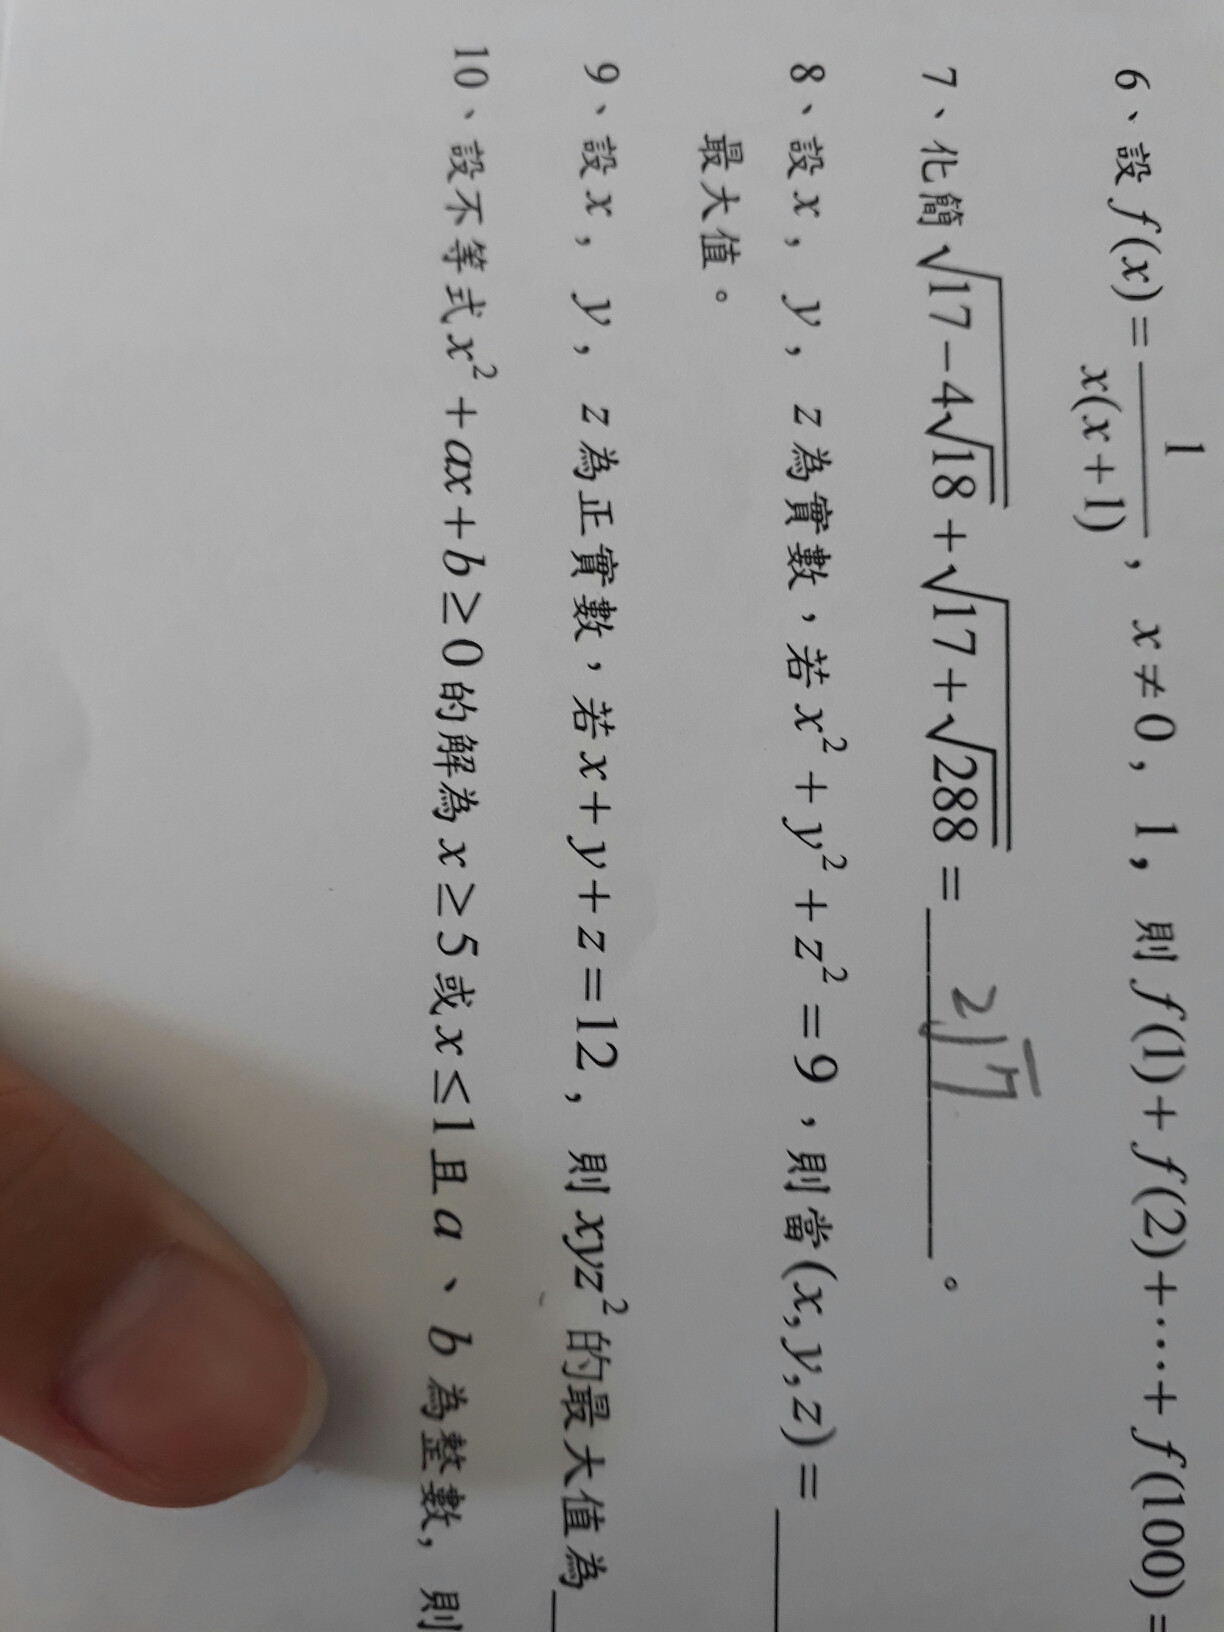 6、設 f(x)=\frac{1}{x(x+1)}，x≠0，1，則 f(1)+f(2)+⋯+f(100)=
7、化簡 \sqrt{17-4\sqrt{18}}+\sqrt{17+\sqrt{288}}= 2√7 。
8、設 x，y，z 為實數，若 x²+y²+z²=9，則當(x,y,z)=
最大值。
9、設 x，y，z 為正實數，若 x+y+z=12，則 xyz² 的最大值為
10、設不等式 x²+ax+b≥0 的解為 x≥5 或 x≤1 且 a、b 為整數，則